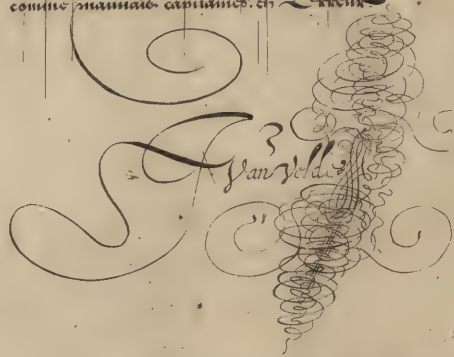 comme mauuais capitaines. en Erreur
Van Velde